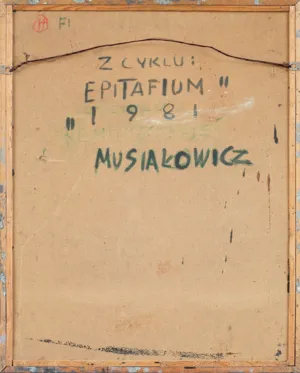 FI
Z CYKLU:
EPITAFIUM"
1981
"
MUSIAŁOWICZ